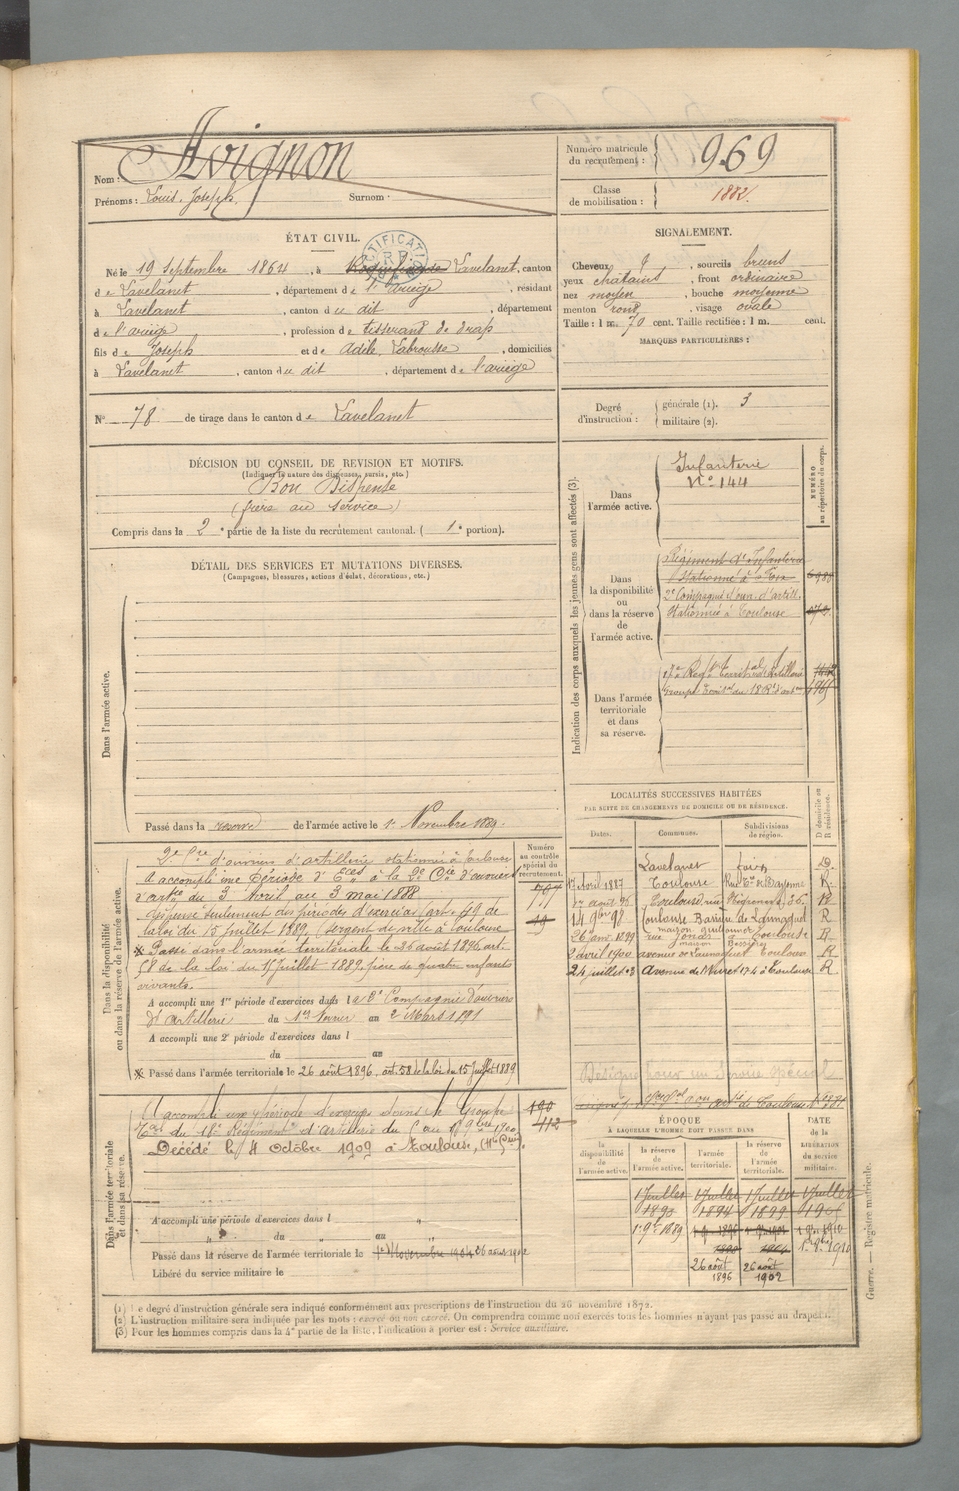 Nom : Avignon
Prénoms : Louis Joseph Surnom :
Numéro matricule du recrutement : 969
Classe de mobilisation : 1882.
ÉTAT CIVIL.
Né le 19 Septembre 1864, à Lavelanet, canton
de Lavelanet, département de l'ariège, résidant
à Lavelanet, canton du dit, département
de l'ariège, profession de tisserand de drap
fils de Joseph et de Adèle Labrousse, domiciliés
à Lavelanet, canton du dit, département de l'ariège
SIGNALEMENT.
Cheveux , sourcils bruns
yeux chatains, front ordinaire
nez moyen, bouche moyenne
menton rond, visage ovale
Taille : 1 m. 70 cent. Taille rectifiée : 1 m. cent.
MARQUES PARTICULIÈRES :
N° 78 de tirage dans le canton de Lavelanet
Degré d'instruction : générale (1). 3
militaire (2).
DÉCISION DU CONSEIL DE REVISION ET MOTIFS.
(Indiquer la nature des dispenses, sursis, etc.)
Bon Dispensé
(frère au service)
Compris dans la 2e partie de la liste du recrutement cantonal. (1e portion).
DÉTAIL DES SERVICES ET MUTATIONS DIVERSES.
(Campagnes, blessures, actions d'éclat, décorations, etc.)
Dans l'armée active.
Passé dans la reserve de l'armée active le 1er Novembre 1889.
Indication des corps auxquels les jeunes gens sont affectés (3).
NUMÉRO au répertoire du corps.
Dans l'armée active.
Infanterie
N° 144
Dans la disponibilité ou dans la réserve de l'armée active.
Régiment d'Infanterie
Stationné à
2e Compagnie d'ouv. d'artill.
Stationnée à Toulouse
Dans l'armée territoriale et dans sa réserve.
LOCALITÉS SUCCESSIVES HABITÉES
PAR SUITE DE CHANGEMENTS DE DOMICILE OU DE RÉSIDENCE.
Dates. Communes. Subdivisions de région. D domicile ou R résidence.
Lavelanet Foix D.
Avril 1887 Toulouse Rue de Bayonne R.
août 96 Toulouse, rue 36 R
14 9bre 98 Toulouse Barrière de Lamagnet R
26 janv 1899 rue Toulouse R
avril 1900 avenue de Toulouse R
24 juillet 03 Avenue de Muret 174 à Toulouse R
Dans la disponibilité ou dans la réserve de l'armée active.
Numéro au contrôle spécial du recrutement.
2e Cie d'ouvriers d'artillerie stationnée à Toulouse
A accompli une Période d'Eces à la 2e Cie d'ouvriers
d'artie du 3 Avril au 3 mai 1888
dispensé seulement des périodes d'exercices (art. 49 de
la loi du 15 juillet 1889, (Sergent de ville à Toulouse
※ Passé dans l'armée territoriale le 26 août 1896, art.
58 de la loi du 15 juillet 1889, père de quatre enfants
vivants.
A accompli une 1re période d'exercices dans la 3e Compagnie d'ouvriers
d'artillerie du 1er février au 2 Mars 1891
A accompli une 2e période d'exercices dans l
du au
※ Passé dans l'armée territoriale le 26 août 1896, art. 58 de la loi du 15 juillet 1889
Désigné pour un service spécial
Dans l'armée territoriale et dans sa réserve.
A accompli une période d'exercices dans le Groupe
du 18e Régiment d'artillerie du 5 au 9bre 1900
Décédé le 4 Octobre 1909 à Toulouse,
190
412
A accompli une période d'exercices dans l
du au
Passé dans la réserve de l'armée territoriale le 1er Novembre 1904 26 août 1902
Libéré du service militaire le
ÉPOQUE
À LAQUELLE L'HOMME DOIT PASSER DANS
la disponibilité de l'armée active. la réserve de l'armée active. l'armée territoriale. la réserve de l'armée territoriale.
DATE de la LIBÉRATION du service militaire.
1 Juillet 1 Juillet 1 Juillet 1 Juillet
1890 1894 1899
1er 9bre 1889
26 août 1896 26 août 1902
(1) Le degré d'instruction générale sera indiqué conformément aux prescriptions de l'instruction du 26 novembre 1872.
(2) L'instruction militaire sera indiquée par les mots : exercé ou non exercé. On comprendra comme non exercés tous les hommes n'ayant pas passé au drapeau.
(3) Pour les hommes compris dans la 4e partie de la liste, l'indication à porter est : Service auxiliaire.
Guerre. — Registre matricule.